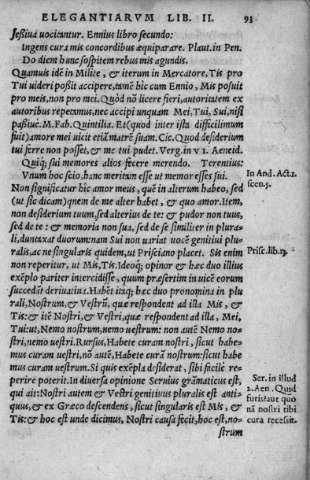 ELEGANTIARVM LIB. II. 93
ſeſtiua uocitentur. Ennius libro ſecundo:
Ingens cura mis concordibus æquiparare. Plaut. in Pen.
Do diem hunc ſoſpitem rebus mis agundis.
Quamuis idẽ in Milite, & iterum in Mercatore, Tis pro
Tui uideri poßit accipere, tunc hic cum Ennio, Mis poſuit
pro meis, non pro mei. Quòd nõ licere fieri, autoritatem ex
autoribus repetemus, nec accipi unquam Mei, Tui, Sui, niſi
paßiue. M. Fab. Quintilia. Et (quod inter iſta difficilimum
fuit) amore mei uicit etiã matrẽ ſuam. Cic. Quod deſiderium
tui ferre non poſſet, & me tui pudet. Verg. in v I. Aeneid.
Quiq́; ſui memores alios fecere merendo. Terentius:
Vnum hoc ſcio, hanc meritam eſſe ut memor eſſes ſui.
In And. Act. 1.
scen. 5.
Non ſignificatur hic amor meus, quẽ in alterum habeo, ſed
(ut ſic dicam) quem de me alter habet, & quo amor. Item,
non deſiderium tuum, ſed alterius de te: & pudor non tuus,
ſed de te: & memoria non ſua, ſed de ſe ſimiliter in plura-
li, duntaxat duorum: nam Sui non uariat uocẽ genitiui plu-
ralis, ac ne ſingularis quidem, ut Priſciano placet. Sis enim
non reperitur, ut Mis, Tis. Ideoq́; opinor & hæc duo illius
exẽplo pariter intercidiſſe, quum præſertim in uicẽ eorum
ſuccedãt deriuatiua. Habẽt itaq; hæc duo pronomina in plu
rali, Noſtrum, & Veſtrũ, quæ reſpondent ad illa Mis, &
Tis: & itẽ Noſtri, & Veſtri, quæ reſpondent ad illa, Mei,
Tui: ut, Nemo noſtrum, nemo ueſtrum: non autẽ Nemo no-
ſtri, nemo ueſtri. Rurſus, Habete curam noſtri, ſicut habe-
mus curam ueſtri, nõ autẽ, Habete curã noſtrum: ſicut habe
mus curam ueſtrum. Si quis exẽpla deſiderat, ſibi facilè re-
perire poterit. In diuerſa opinione Seruius grãmaticus eſt,
qui ait: Noſtri autem & Veſtri genitiuus pluralis eſt anti-
quus, & ex Græco deſcendens, ſicut ſingularis eſt Mis, &
Tis: & hoc eſt unde dicimus, Noſtri cauſa fecit, hoc eſt, no-
ſtrum
Priſc. lib. 13.
Ser. in illud
2. Aen. Quid
furis? aut quo
nã noſtri tibi
cura receſſit.